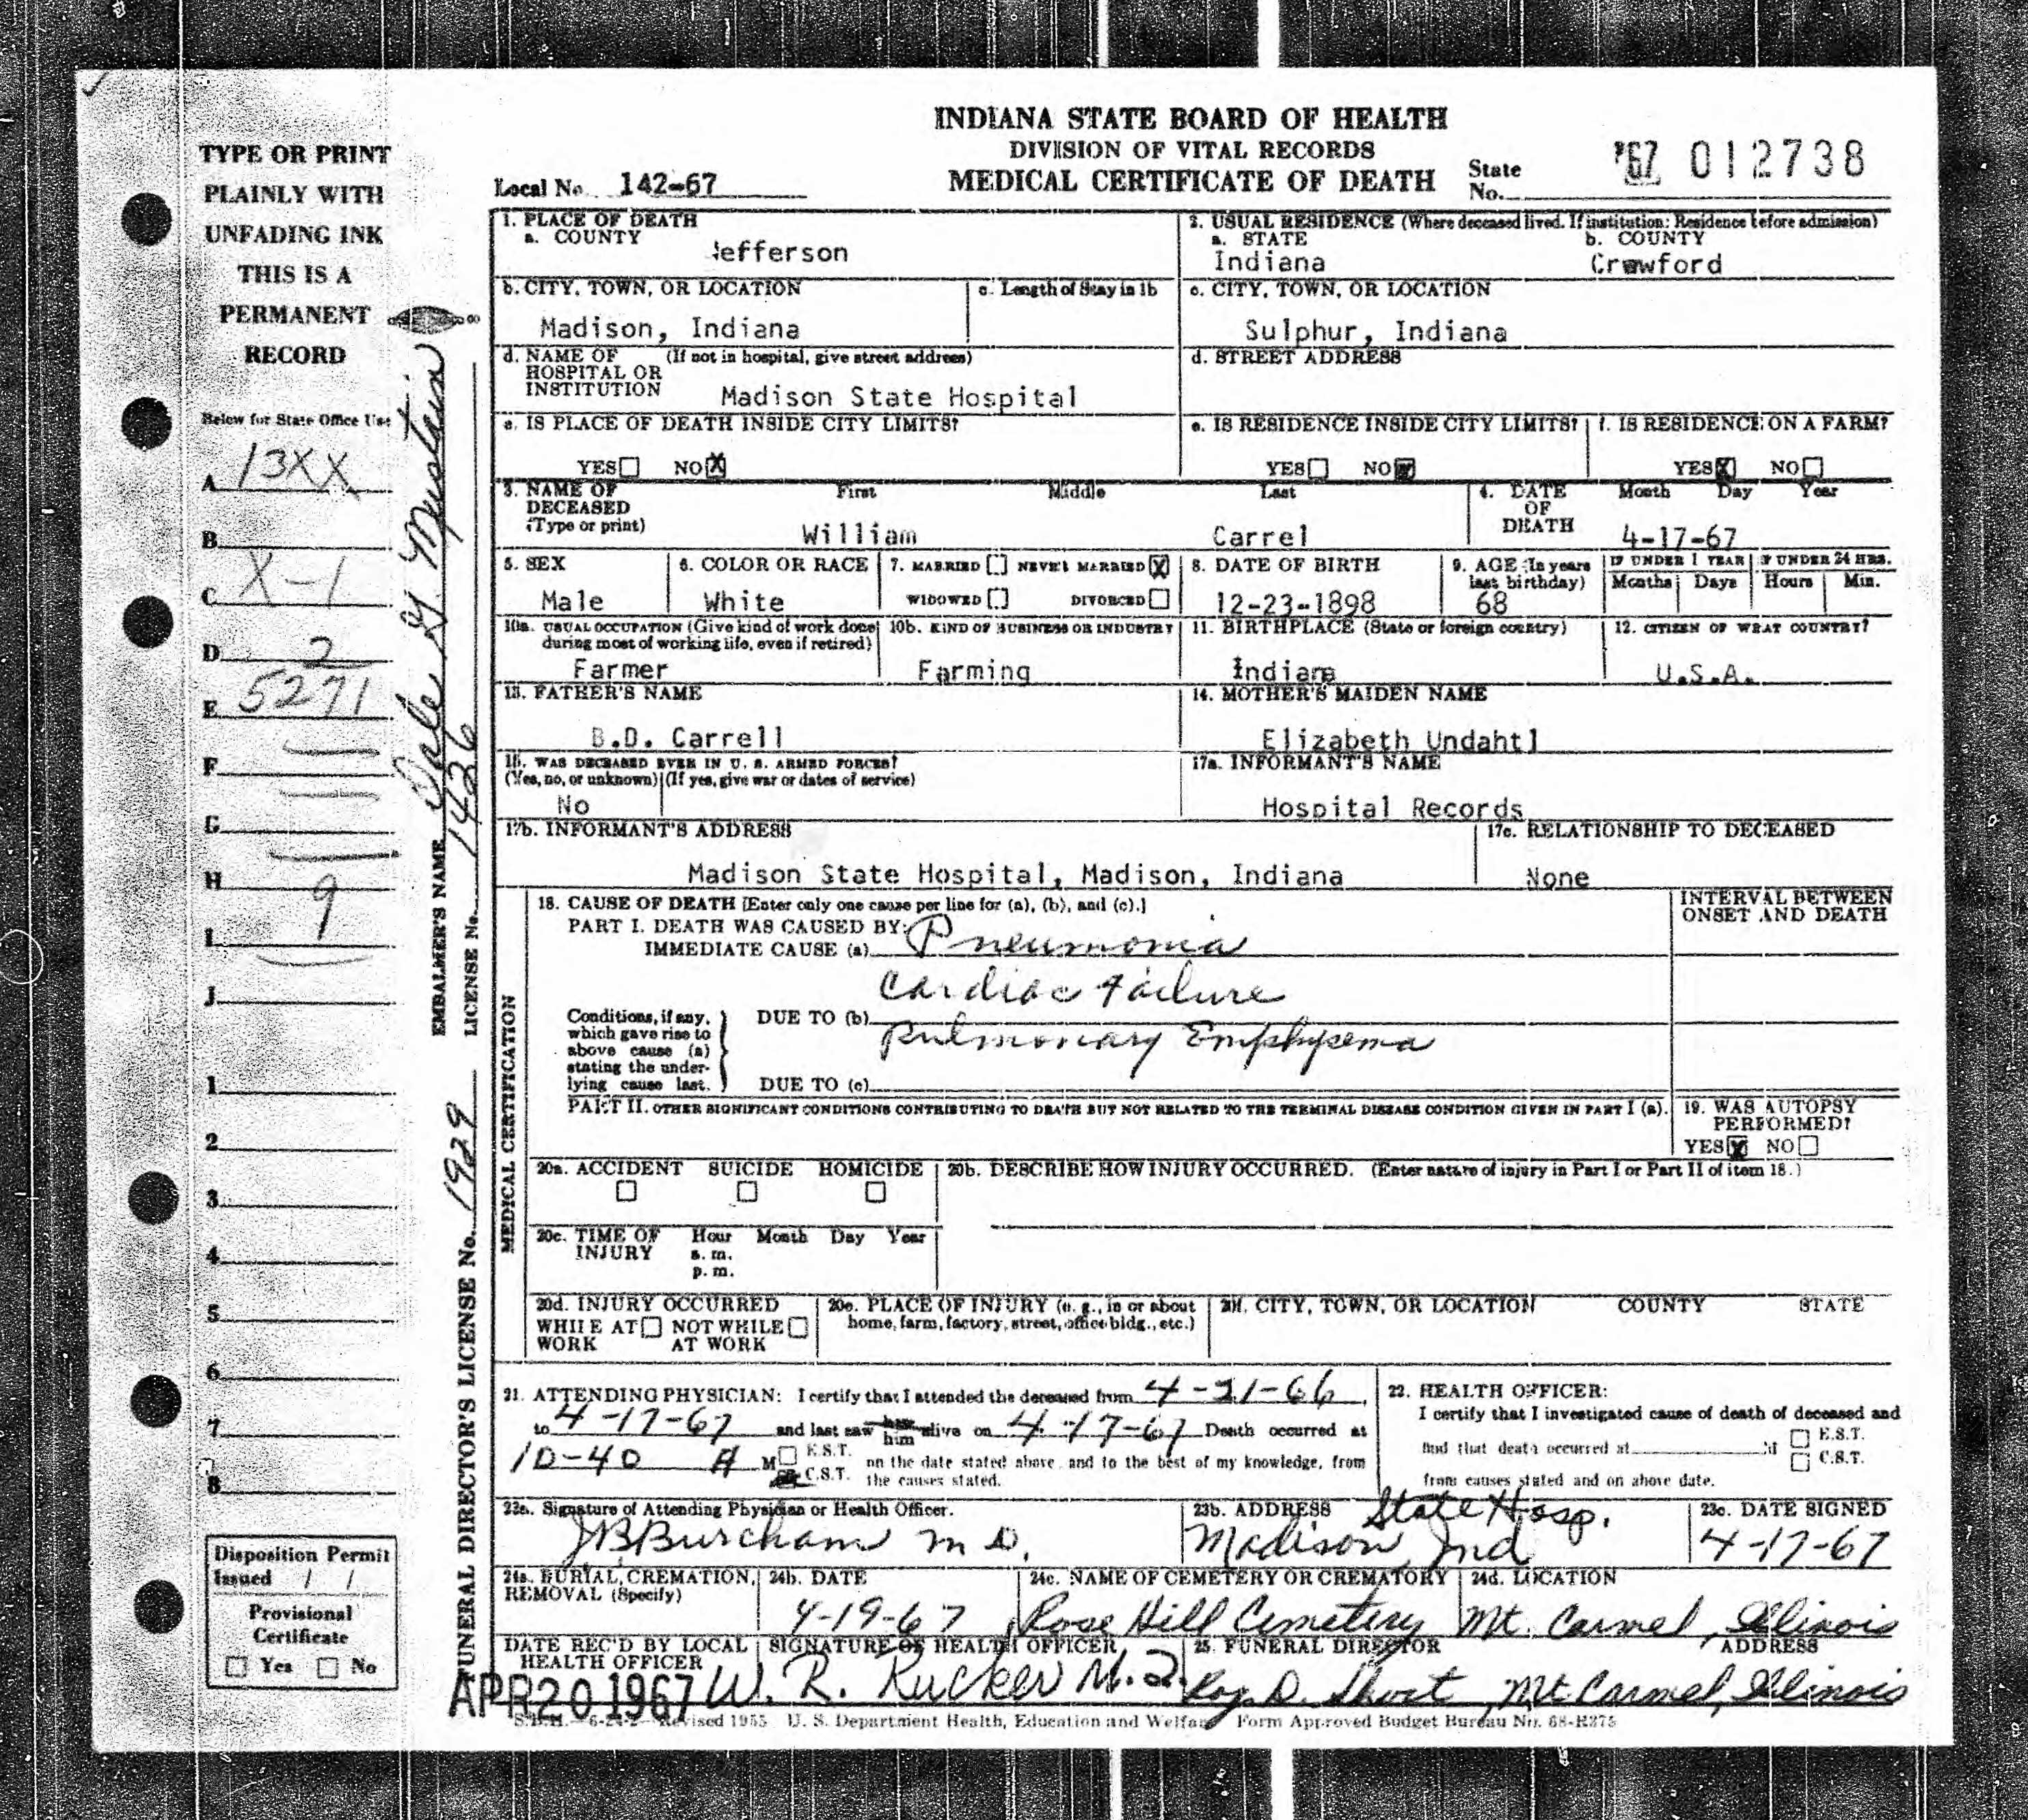 INDIANA STATE BOARD OF HEALTH
DIVISION OF VITAL RECORDS
MEDICAL CERTIFICATE OF DEATH
Local No. 142-67
State No. '67 012738
TYPE OR PRINT
PLAINLY WITH
UNFADING INK
THIS IS A
PERMANENT
RECORD
Below for State Office Use
A 13XX
B
C X-1
D 2
E 5271
F
G
H 9
I
J
1
2
3
4
5
6
7
8
Disposition Permit
Issued / /
Provisional
Certificate
Yes No
EMBALMER'S NAME Dale G.
LICENSE No. 1426
FUNERAL DIRECTOR'S LICENSE No. 1929
1. PLACE OF DEATH
a. COUNTY
Jefferson
2. USUAL RESIDENCE (Where deceased lived. If institution: Residence before admission)
a. STATE b. COUNTY
Indiana Crawford
b. CITY, TOWN, OR LOCATION c. Length of Stay in 1b
Madison, Indiana
c. CITY, TOWN, OR LOCATION
Sulphur, Indiana
d. NAME OF HOSPITAL OR INSTITUTION (If not in hospital, give street address)
Madison State Hospital
d. STREET ADDRESS
e. IS PLACE OF DEATH INSIDE CITY LIMITS?
YES NO X
e. IS RESIDENCE INSIDE CITY LIMITS? f. IS RESIDENCE ON A FARM?
YES NO X YES X NO
3. NAME OF DECEASED (Type or print) First Middle Last
William Carrel
4. DATE OF DEATH Month Day Year
4-17-67
5. SEX
Male
6. COLOR OR RACE
White
7. MARRIED NEVER MARRIED X
WIDOWED DIVORCED
8. DATE OF BIRTH
12-23-1898
9. AGE (In years last birthday)
68
IF UNDER 1 YEAR IF UNDER 24 HRS.
Months Days Hours Min.
10a. USUAL OCCUPATION (Give kind of work done during most of working life, even if retired)
Farmer
10b. KIND OF BUSINESS OR INDUSTRY
Farming
11. BIRTHPLACE (State or foreign country)
Indiana
12. CITIZEN OF WHAT COUNTRY?
U.S.A.
13. FATHER'S NAME
B.D. Carrell
14. MOTHER'S MAIDEN NAME
Elizabeth Undahtl
15. WAS DECEASED EVER IN U. S. ARMED FORCES?
(Yes, no, or unknown) (If yes, give war or dates of service)
No
17a. INFORMANT'S NAME
Hospital Records
17b. INFORMANT'S ADDRESS
Madison State Hospital, Madison, Indiana
17c. RELATIONSHIP TO DECEASED
None
MEDICAL CERTIFICATION
18. CAUSE OF DEATH [Enter only one cause per line for (a), (b), and (c).]
PART I. DEATH WAS CAUSED BY:
IMMEDIATE CAUSE (a) Pneumonia
INTERVAL BETWEEN
ONSET AND DEATH
Cardiac Failure
DUE TO (b)
Pulmonary Emphysema
DUE TO (c)
Conditions, if any,
which gave rise to
above cause (a)
stating the under-
lying cause last.
PART II. OTHER SIGNIFICANT CONDITIONS CONTRIBUTING TO DEATH BUT NOT RELATED TO THE TERMINAL DISEASE CONDITION GIVEN IN PART I (a).
19. WAS AUTOPSY
PERFORMED?
YES X NO
20a. ACCIDENT SUICIDE HOMICIDE
20b. DESCRIBE HOW INJURY OCCURRED. (Enter nature of injury in Part I or Part II of item 18.)
20c. TIME OF INJURY Hour Month Day Year
a. m.
p. m.
20d. INJURY OCCURRED
WHILE AT WORK NOT WHILE AT WORK
20e. PLACE OF INJURY (e. g., in or about
home, farm, factory, street, office bldg., etc.)
20f. CITY, TOWN, OR LOCATION COUNTY STATE
21. ATTENDING PHYSICIAN: I certify that I attended the deceased from 4-21-66,
to 4-17-67 and last saw her him alive on 4-17-67 Death occurred at
10-40 A M E.S.T. C.S.T. on the date stated above, and to the best of my knowledge, from
the causes stated.
22. HEALTH OFFICER:
I certify that I investigated cause of death of deceased and
find that death occurred at M E.S.T. C.S.T.
from causes stated and on above date.
23a. Signature of Attending Physician or Health Officer.
JB Burcham M D.
23b. ADDRESS State Hosp.
Madison, Ind
23c. DATE SIGNED
4-17-67
24a. BURIAL, CREMATION,
REMOVAL (Specify)
24b. DATE
4-19-67
24c. NAME OF CEMETERY OR CREMATORY
Rose Hill Cemetery
24d. LOCATION
Mt. Carmel, Illinois
DATE REC'D BY LOCAL
HEALTH OFFICER
APR 20 1967
SIGNATURE OF HEALTH OFFICER
W. R. Rucker M.D.
25. FUNERAL DIRECTOR ADDRESS
Roy D. Short, Mt. Carmel, Illinois
S.B.H.—6-24-2—Revised 1955 U. S. Department Health, Education and Welfare Form Approved Budget Bureau No. 68-R275